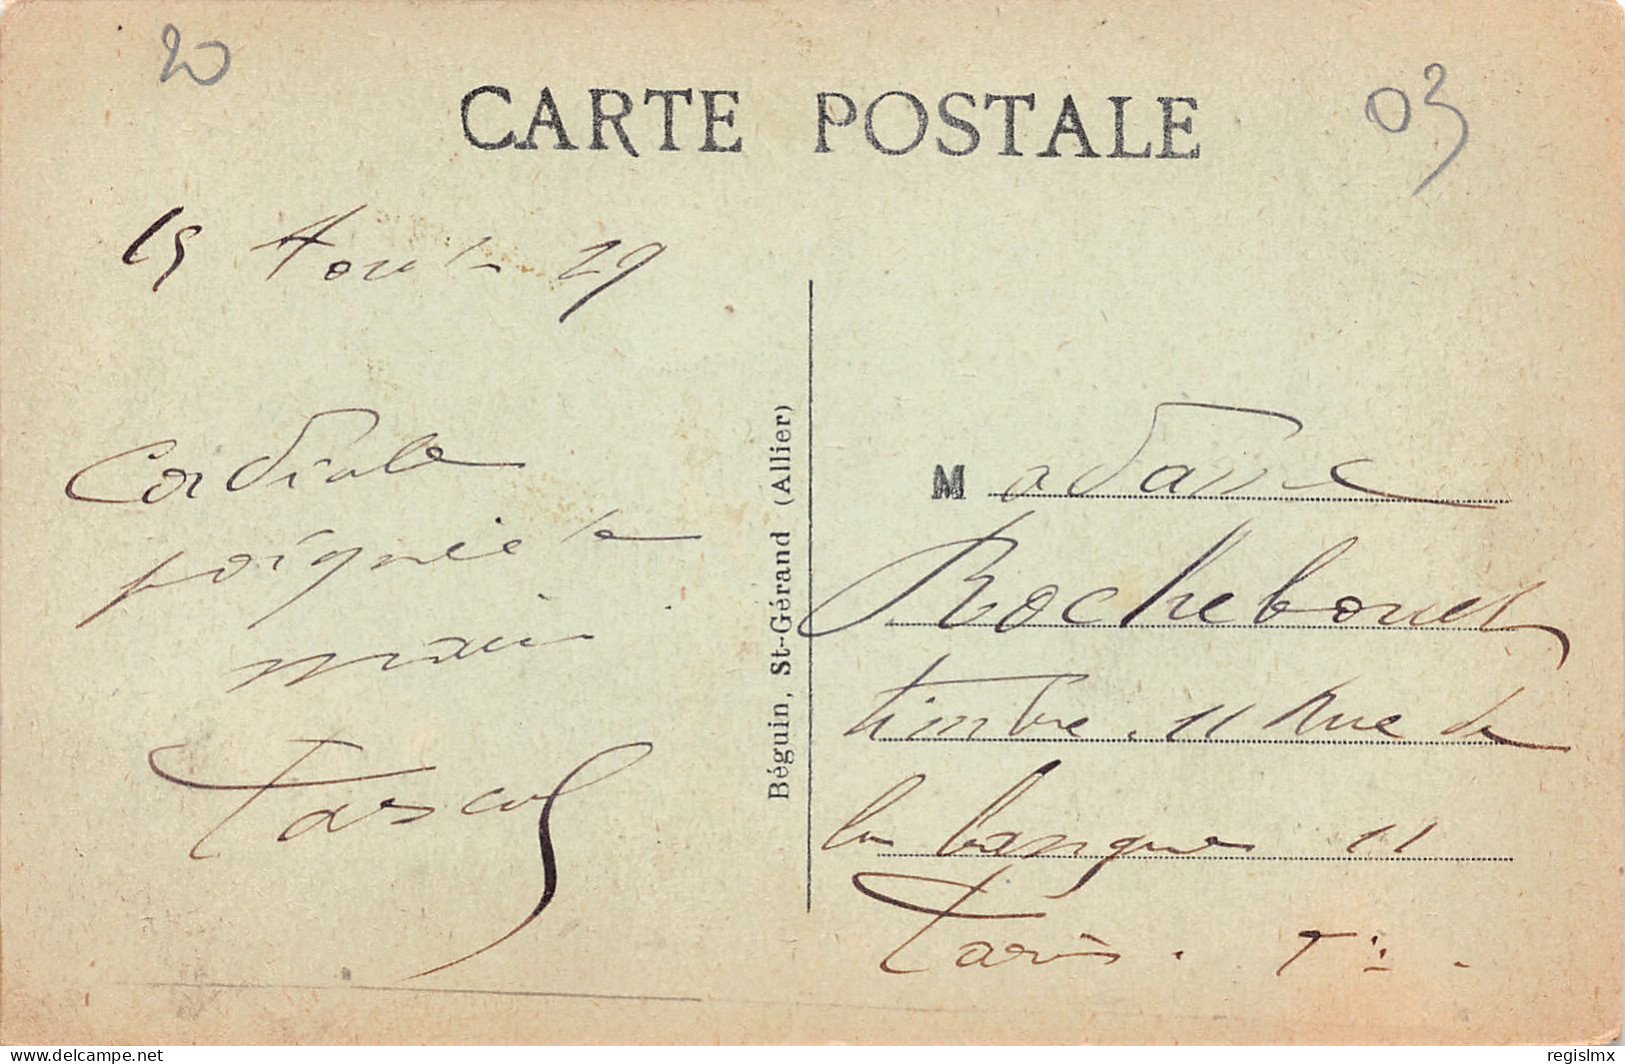 20
CARTE POSTALE
03
15 Août 29
Cordiale
poignée de
main
Pascal
Béguin, St-Gérand (Allier)
Madame
Rochebouet
timbre. 11 Rue de
la banque 11
Paris.
www.delcampe.net
regislmx